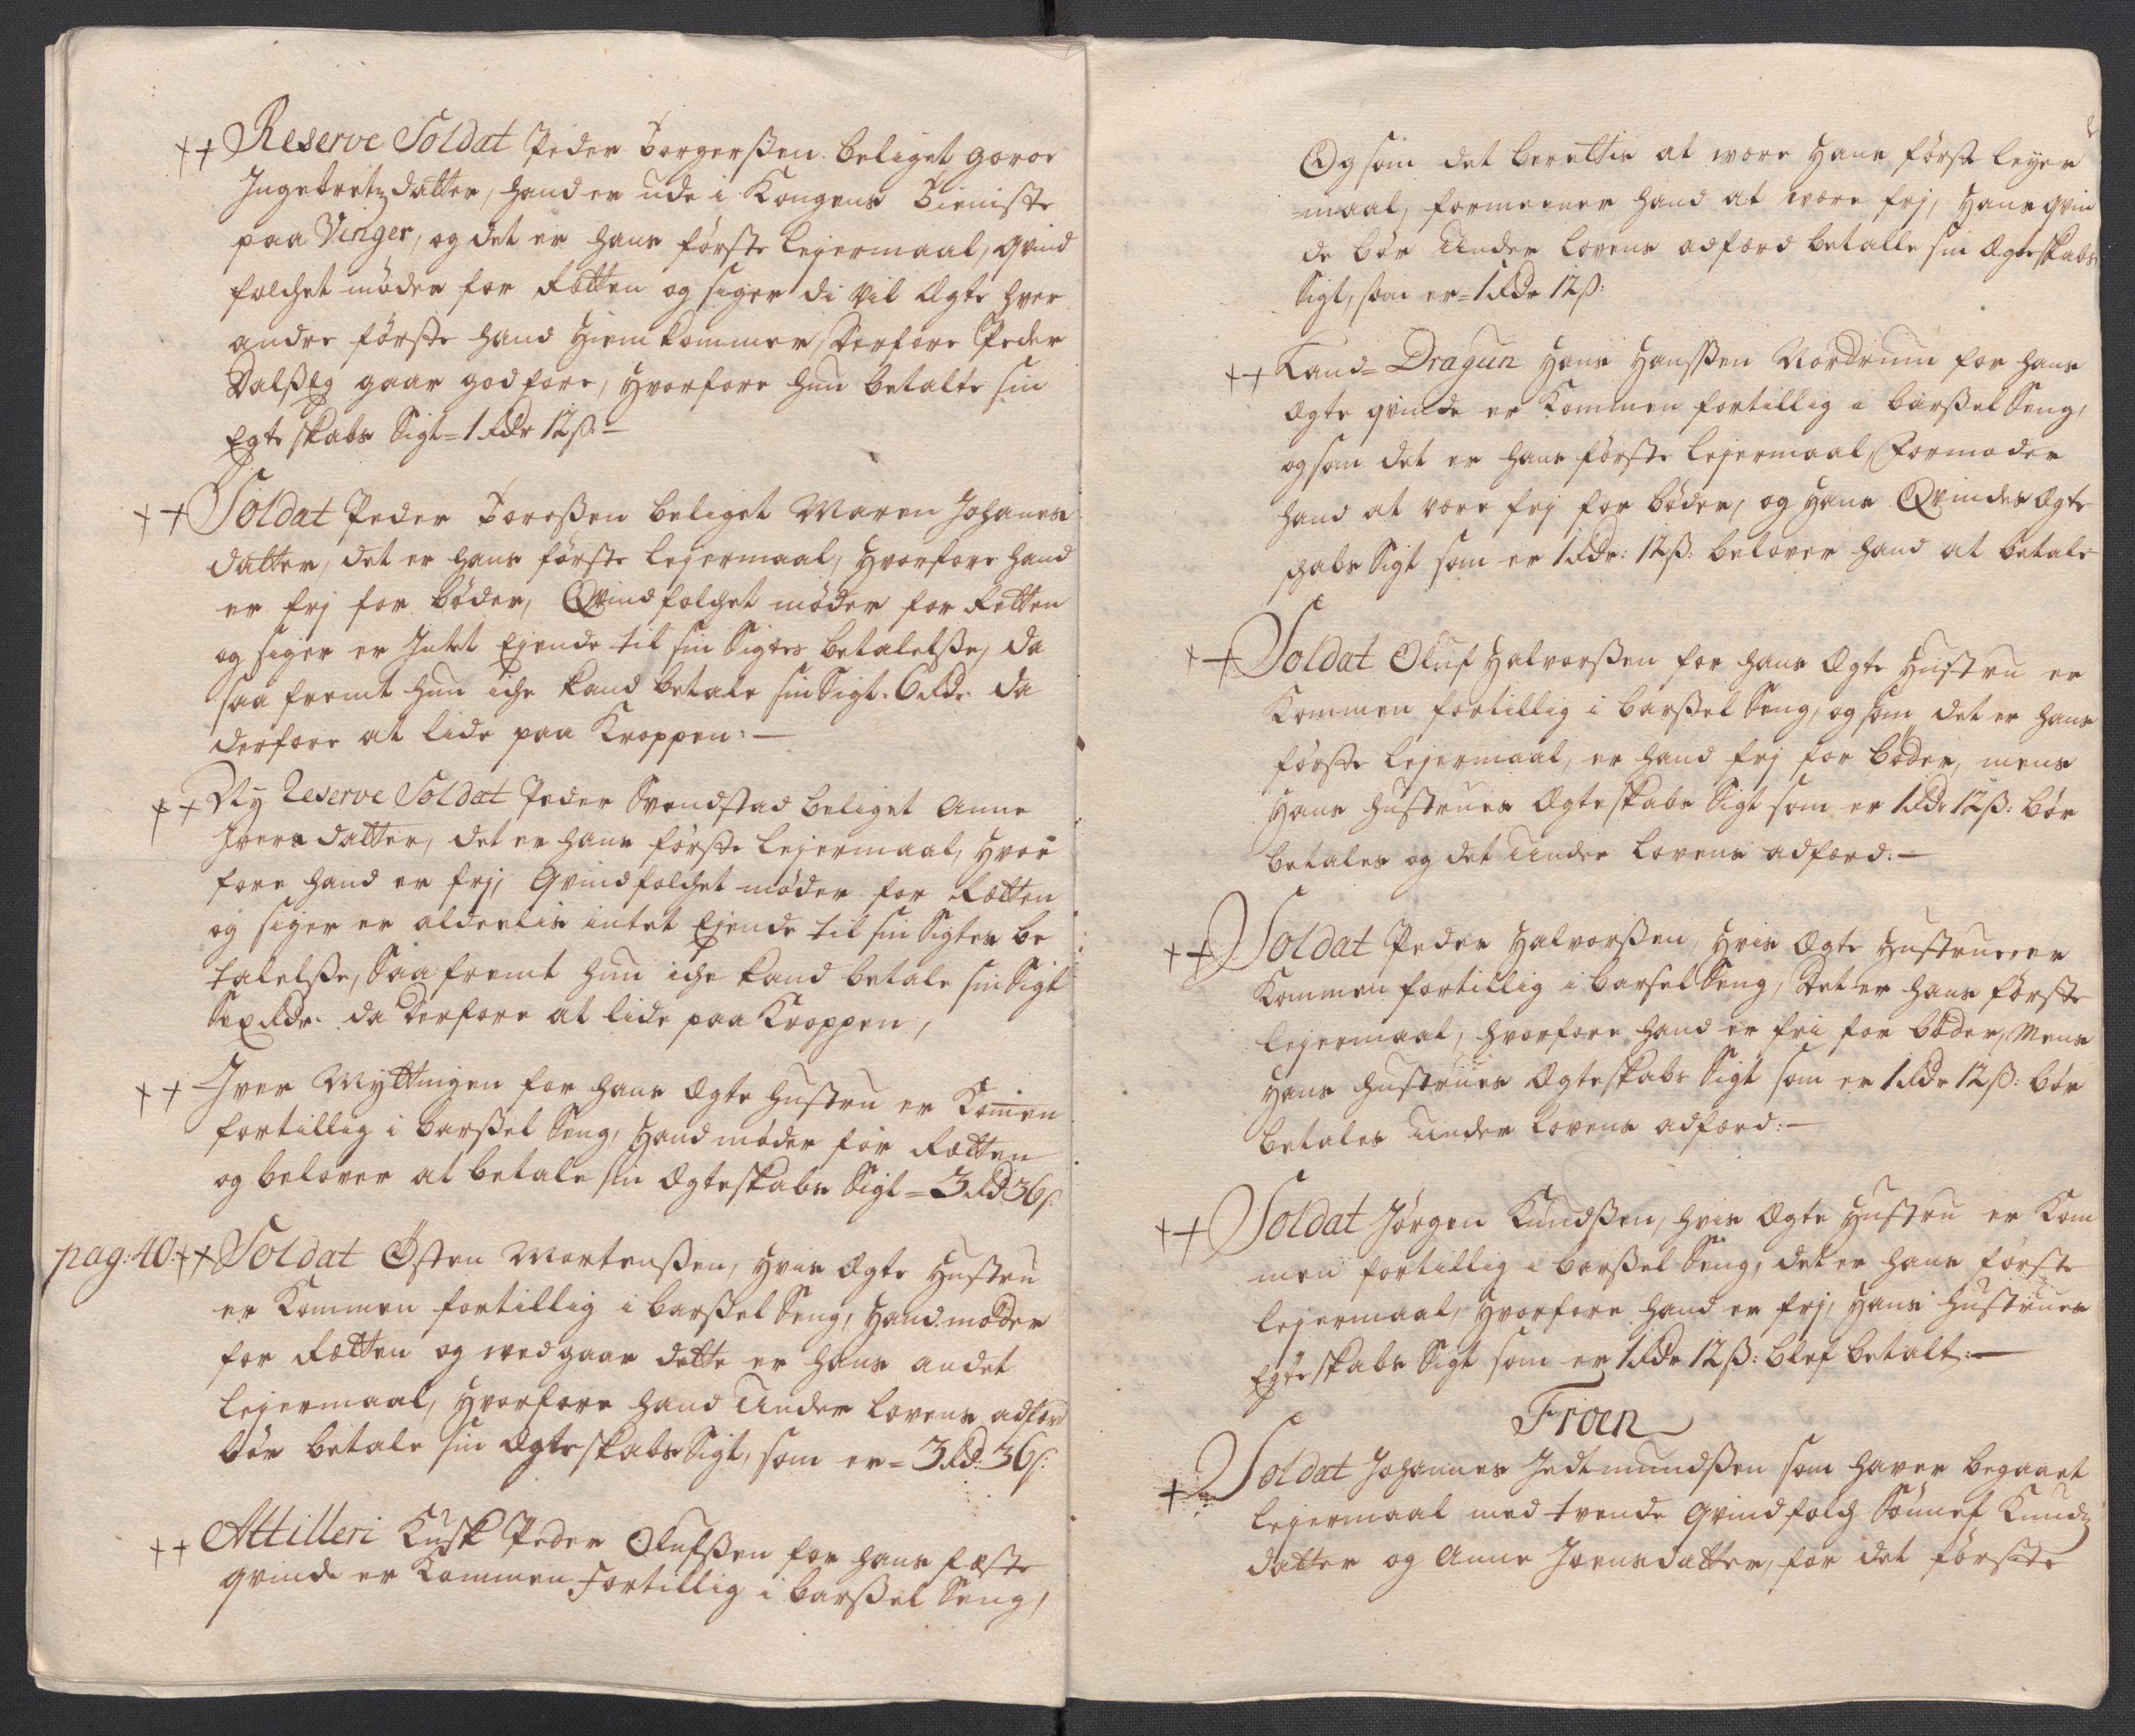 ++ Reserve Soldat Peder Torgerßen beliget goroe
Ingebretzdatter, hand er ude i Kongens Tieniste
paa Vinger, og det er hans förste lejermaal, qvind
folchet möder for Rætten og siger di vil ægte hver
andre förste hand hiem kommer, derfore Peder
Dalßeg gaar godfore, hvorfore hun betalte sin
Egteskabs Sigt = 1 Rdr 12 ß: —
++ Soldat Peder Toreßen beliget Maren Johanes
datter, det er hans förste lejermaal, hvorfore hand
er frj for böder, Qvindfolchet möder for Retten
og siger er Intet Ejende til sin Sigtes betalelße, da
saa fremt hun iche kand betale sin Sigt. 6 Rdr. da
derfore at lide paa Kroppen: —
++ Ny Reserve Soldat Peder Svendstad beliget Anne
Iversdatter, det er hans förste lejermaal, hvor
fore hand er frj, Qvindfolchet möder for Rætten
og siger er alderlis intet Ejende til sin Sigtes be
talelße, Saa fremt hun iche kand betale sin Sigt
Sex Rdr. da derfore at lide paa Kroppen,
++ Iver Myttingen for hans ægte hustru er Komen
fortillig i barßel Seng, hand möder for Rætten
og belover at betale sin ægteskabs Sigt = 3 Rd 36 ß:
pag: 40. ++ Soldat Östen Mortenßen, hvis ægte hustru
er Kommen fortillig i barßel Seng, hand möder
for Rætten og vedgaar dette er hans andet
lejermaal, hvorfore hand under lovens adfærd
bör betale sin ægteskabs Sigt, som er = 3 Rd: 36 ß:
++ Attilleri Kusk Peder Olufßen for hans fæste
qvinde er Kommen Fortillig i barßel Seng,
Og som det berettis at være hans förste leyer
=maal, formeener hand at være frj, hans qvin
de bör under lovens adfærd betalle sin ægteskabs
Sigt, som er = 1 Rdr 12 ß:
++ Land= Dragun Hans Hanßen Nordrum for hans
ægte qvinde er Kommen fortillig i barßel Seng,
og som det er hans förste lejermaal, Formoder
hand at være frj for böder, og hans Qvindes ægte
schabs Sigt som er 1 Rdr: 12 ß: belover hand at betale
++ Soldat Oluf Halvorßen for hans ægte hustru er
Kommen fortillig i barßel Seng, og som det er hans
förste lejermaal, er hand frj for böder, mens
hans hustrues ægteskabs Sigt som er 1 Rdr 12 ß: bör
betales og det under lovens adfærd: —
++ Soldat Peder Halvorßen, hvis ægte hustrue er
Kommen fortillig i barsel Seng, det er hans förste
lejermaal, hvorfore hand er fri for böder, mens
hans hustrues ægteskabs Sigt som er 1 Rdr 12 ß: bör
betales under lovens adfærd: —
++ Soldat Jörgen Knudßen, hvis ægte hustru er Kom
men fortillig i barßel Seng, det er hans förste
lejermaal, hvorfore hand er frj, hans hustrues
Egteskabs Sigt som er 1 Rdr 12 ß: blef betalt: —
Froen
+ Soldat Johannes Jedtmundßen som haver begaaet
lejermaal med tvende qvindfolch Sönnef Knudz
datter og Anne Joensdatter, for det förste